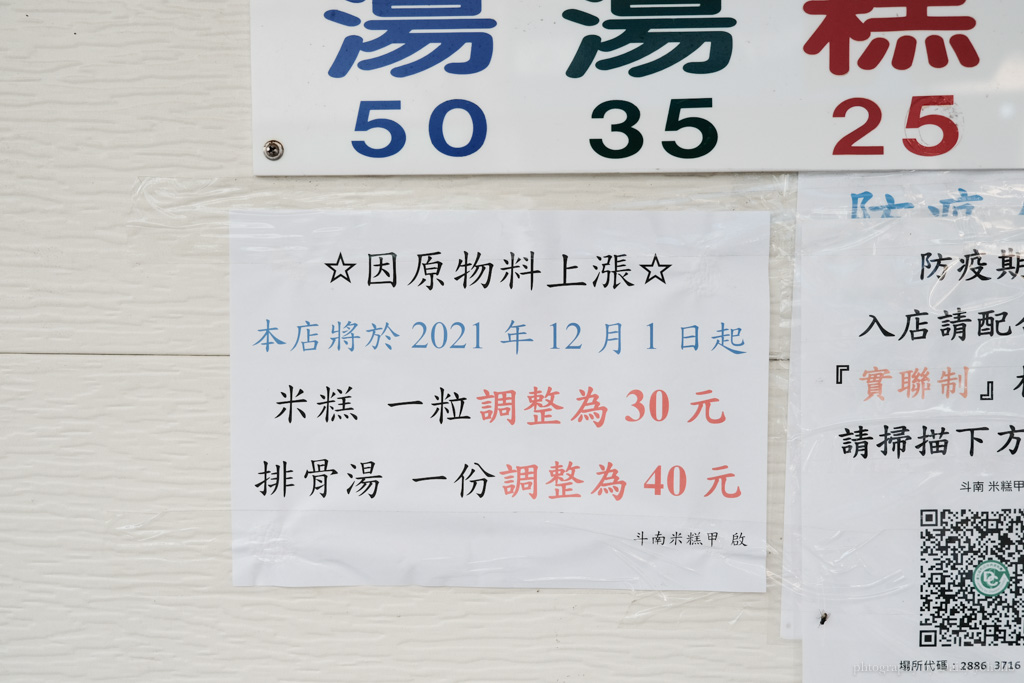 湯 湯 糕
50 35 25
☆因原物料上漲☆
本店將於 2021 年 12 月 1 日起
米糕 一粒調整為 30 元
排骨湯 一份調整為 40 元
斗南米糕甲 啟
防疫
防疫期
入店請配合
『實聯制』
請掃描下方
斗南 米糕甲
場所代碼：2886 3716